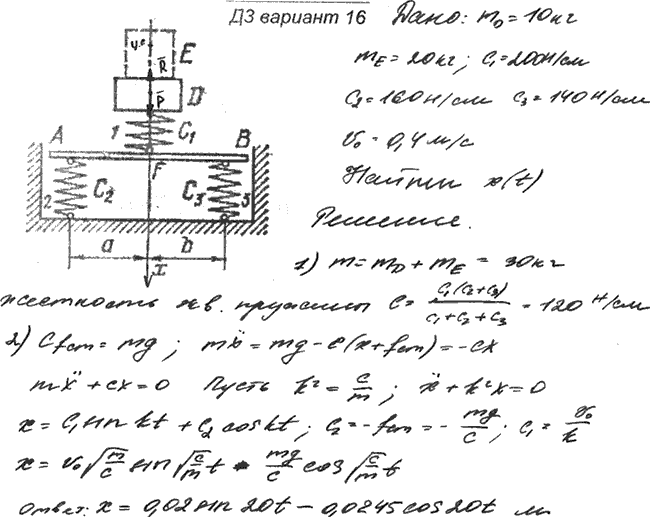 ДЗ вариант 16
Дано: m_D = 10кг
m_E = 20кг; c₁ = 200Н/см
c₂ = 160Н/см c₃ = 140Н/см
v₀ = 0,4 м/с
Найти x(t)
Решение.
E
R̄
D
P̄
1 C₁
A B
F
2 C₂ C₃ 3
a b
x
1) m = m_D + m_E = 30кг
жесткость экв. пружины C = c₁(c₂+c₃)/(c₁+c₂+c₃) = 120 Н/см
2) Cf_ст = mg; mẍ = mg − c(x + f_ст) = −cx
mẍ + cx = 0 Пусть k² = c/m; ẍ + k²x = 0
x = C₁ sin kt + C₂ cos kt; C₂ = −f_ст = − mg/c; C₁ = v₀/k
x = v₀ √(m/c) sin √(c/m) t − mg/c cos √(c/m) t
Ответ: x = 0,02 sin 20t − 0,0245 cos 20t м